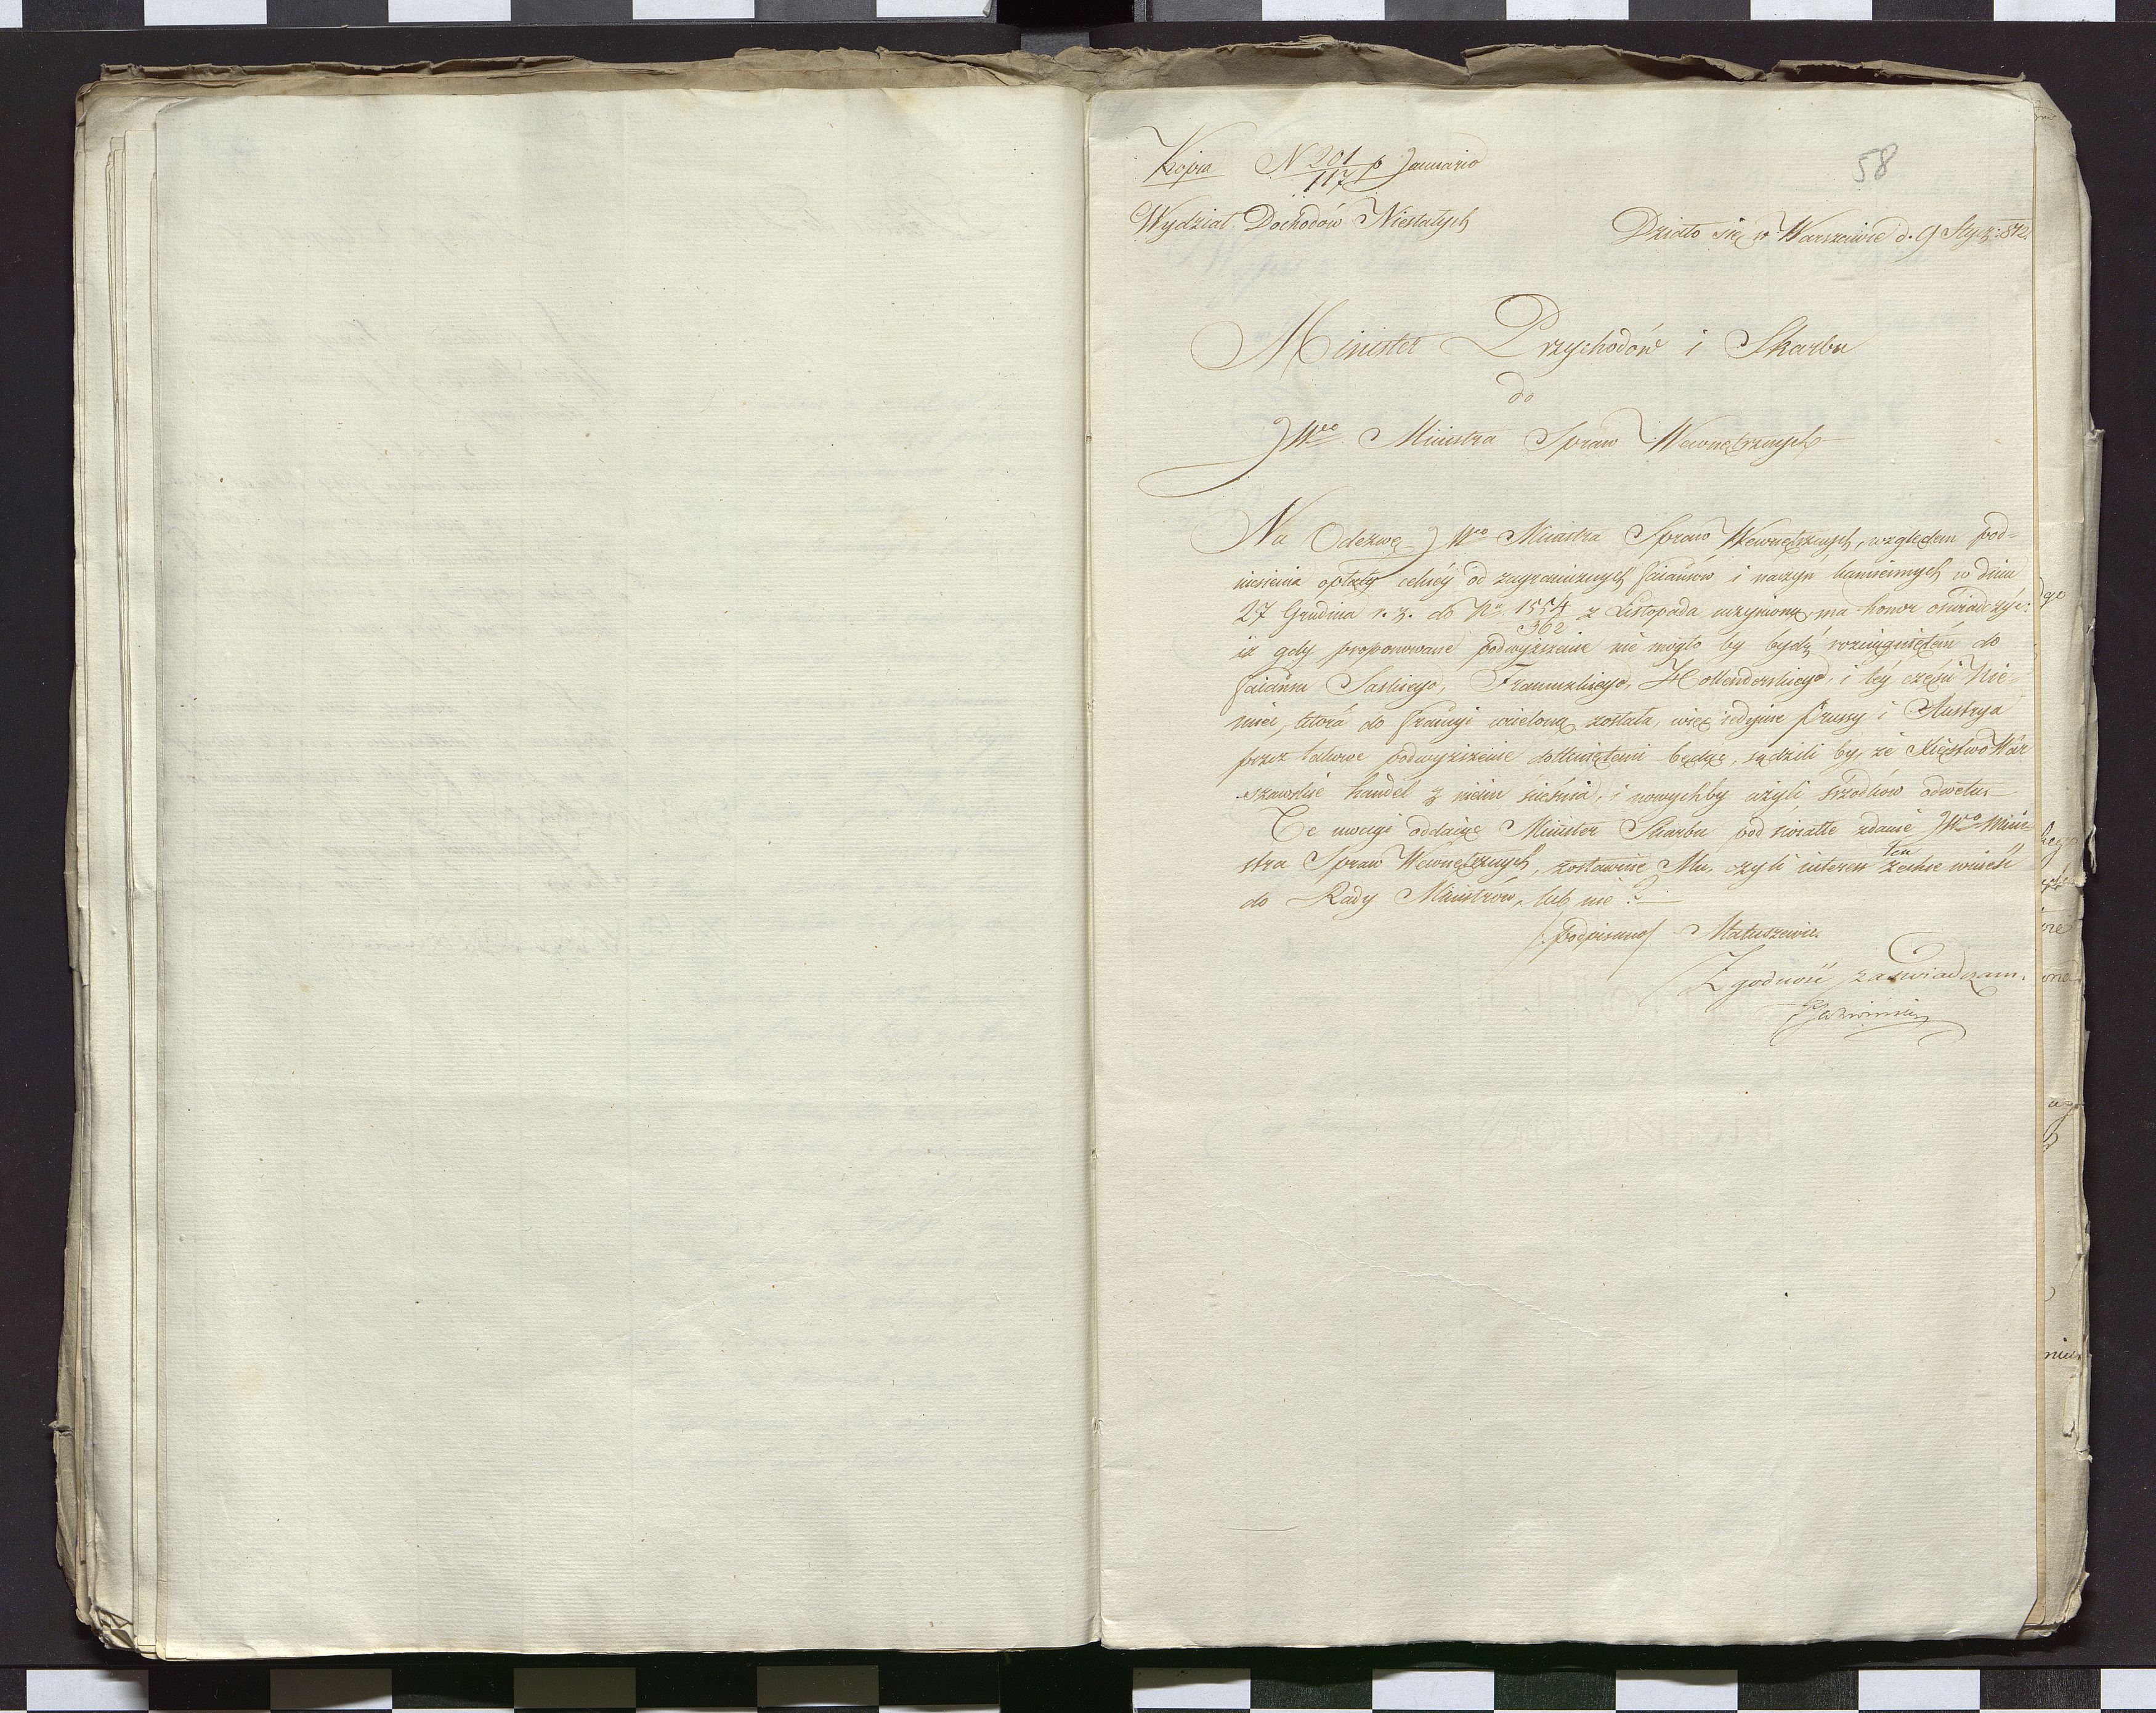 58
Kopia N 201/117 p Januario
Wydział Dochodów Niestałych
Działo się w Warszawie d. 9 Stycz: 1812.
Minister Przychodów i Skarbu
do
JWgo Ministra Spraw Wewnętrznych
Na Odezwę JWgo Ministra Spraw Wewnętrznych, względem pod=
niesienia opłaty celnéy od zagranicznych faiansów i naczyń kamiennych w dniu
27 Grudnia r. z. do Nru 1554/362 z Listopada uczynioną, ma honor oświadczyć:
iż gdy proponowane podwyższenie nie mogło by bydź rozciągniętem do
faiansu Saskiego, Francuzkiego, Hollenderskiego, i téy części Nie-
miec, która do Francyi wcieloną została, więc iedynie Prussy i Austrya
przez takowe podwyższenie dotkniętemi będąc, sądzili by, że Xięstwo War
szawskie handel z niemi ścieśnia, i nowychby użyli śrzodków odwetu
Te uwagi oddaiąc Minister Skarbu pod światłe zdanie JWgo Mini-
stra Spraw Wewnętrznych, zostawuie Mu, czyli interes ten zechce wnieść
do Rady Ministrów, lub nie?
/:podpisano/ Matuszewic
Zgodność zaświadczam.